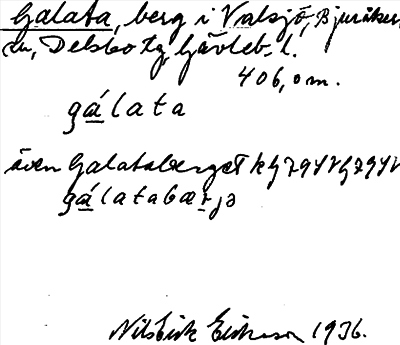 Galata, berg i Valsjö, Bjuråker
sn, Delsbo tg, Gävleb. l.
406,0 m.
gálata
även Galataberget
gálatabærjə
Nils Erik Eriksson 1936.